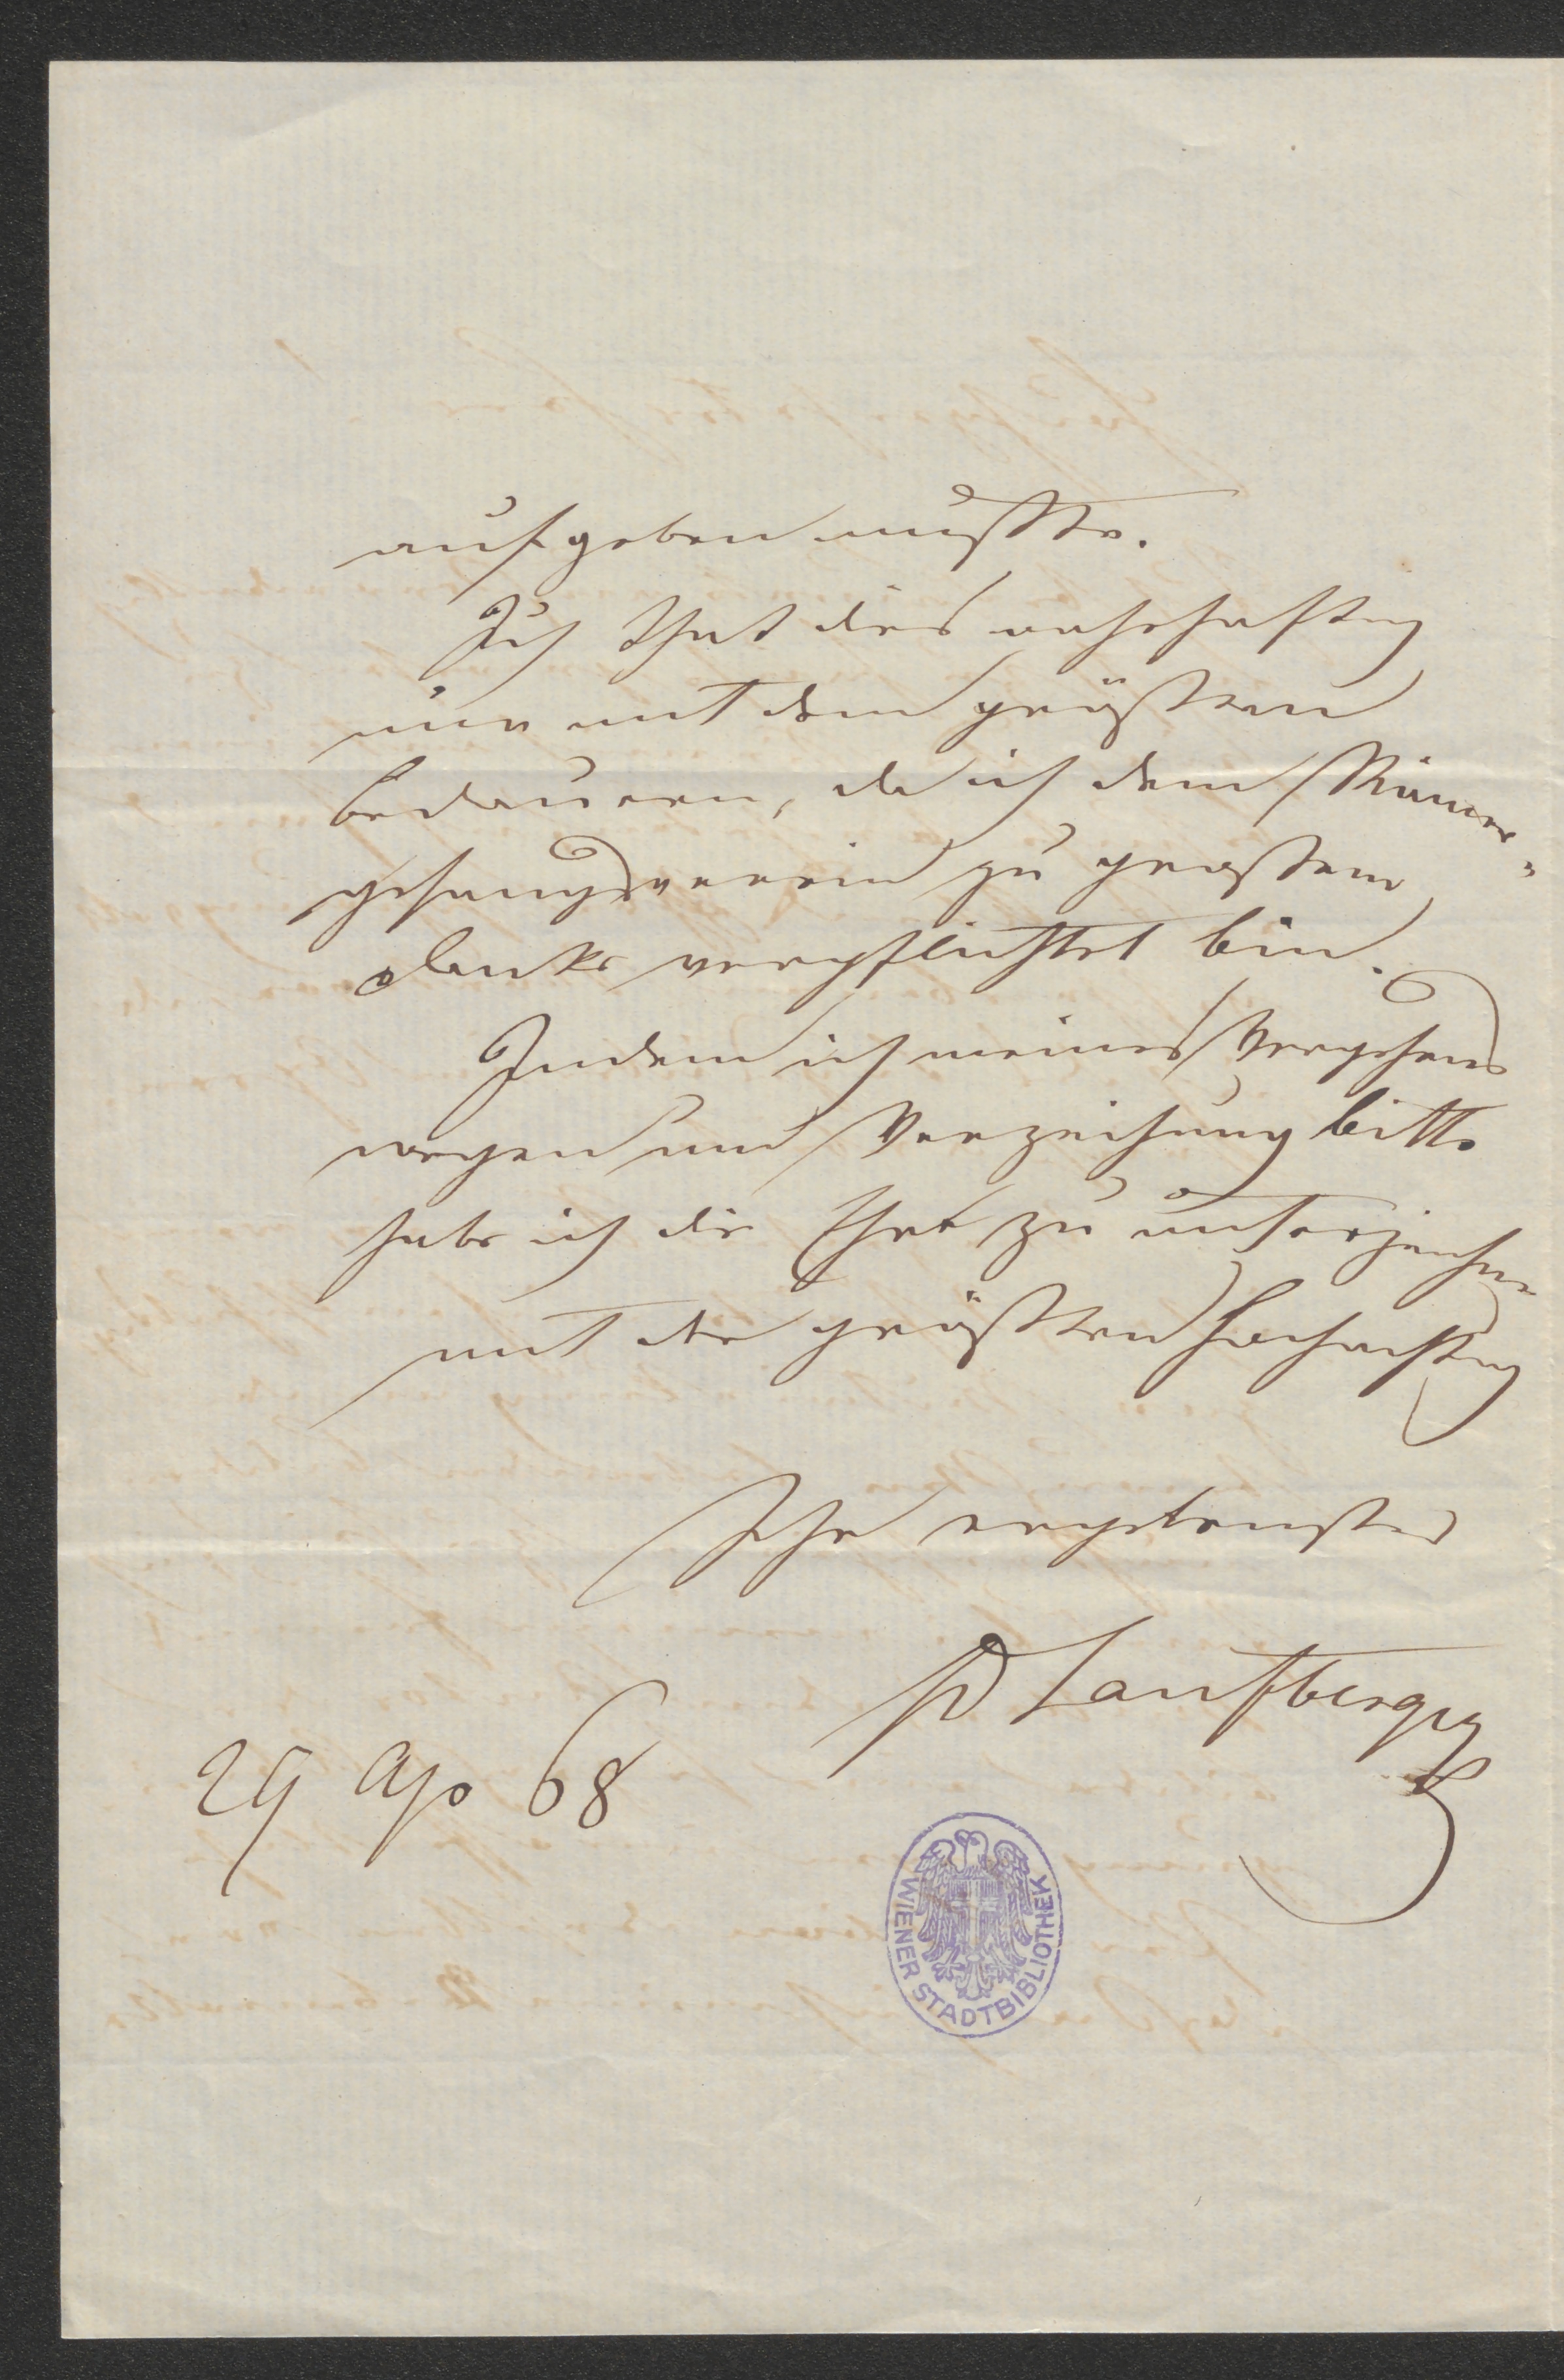 aufgeben mußte.
Ich that dies wahrhaftig
nur mit dem größten
bedauern, da ich dem Männer-
gesangsverein zu großem
danke verpflichtet bin.
Indem ich meines Vergehens
wegen um Verzeihung bitte
habe ich die Ehre zu unterzeichnen
mit der größten Hochachtung
Ihr ergebenster
F Laufberger
29 Ap 68
WIENER STADTBIBLIOTHEK